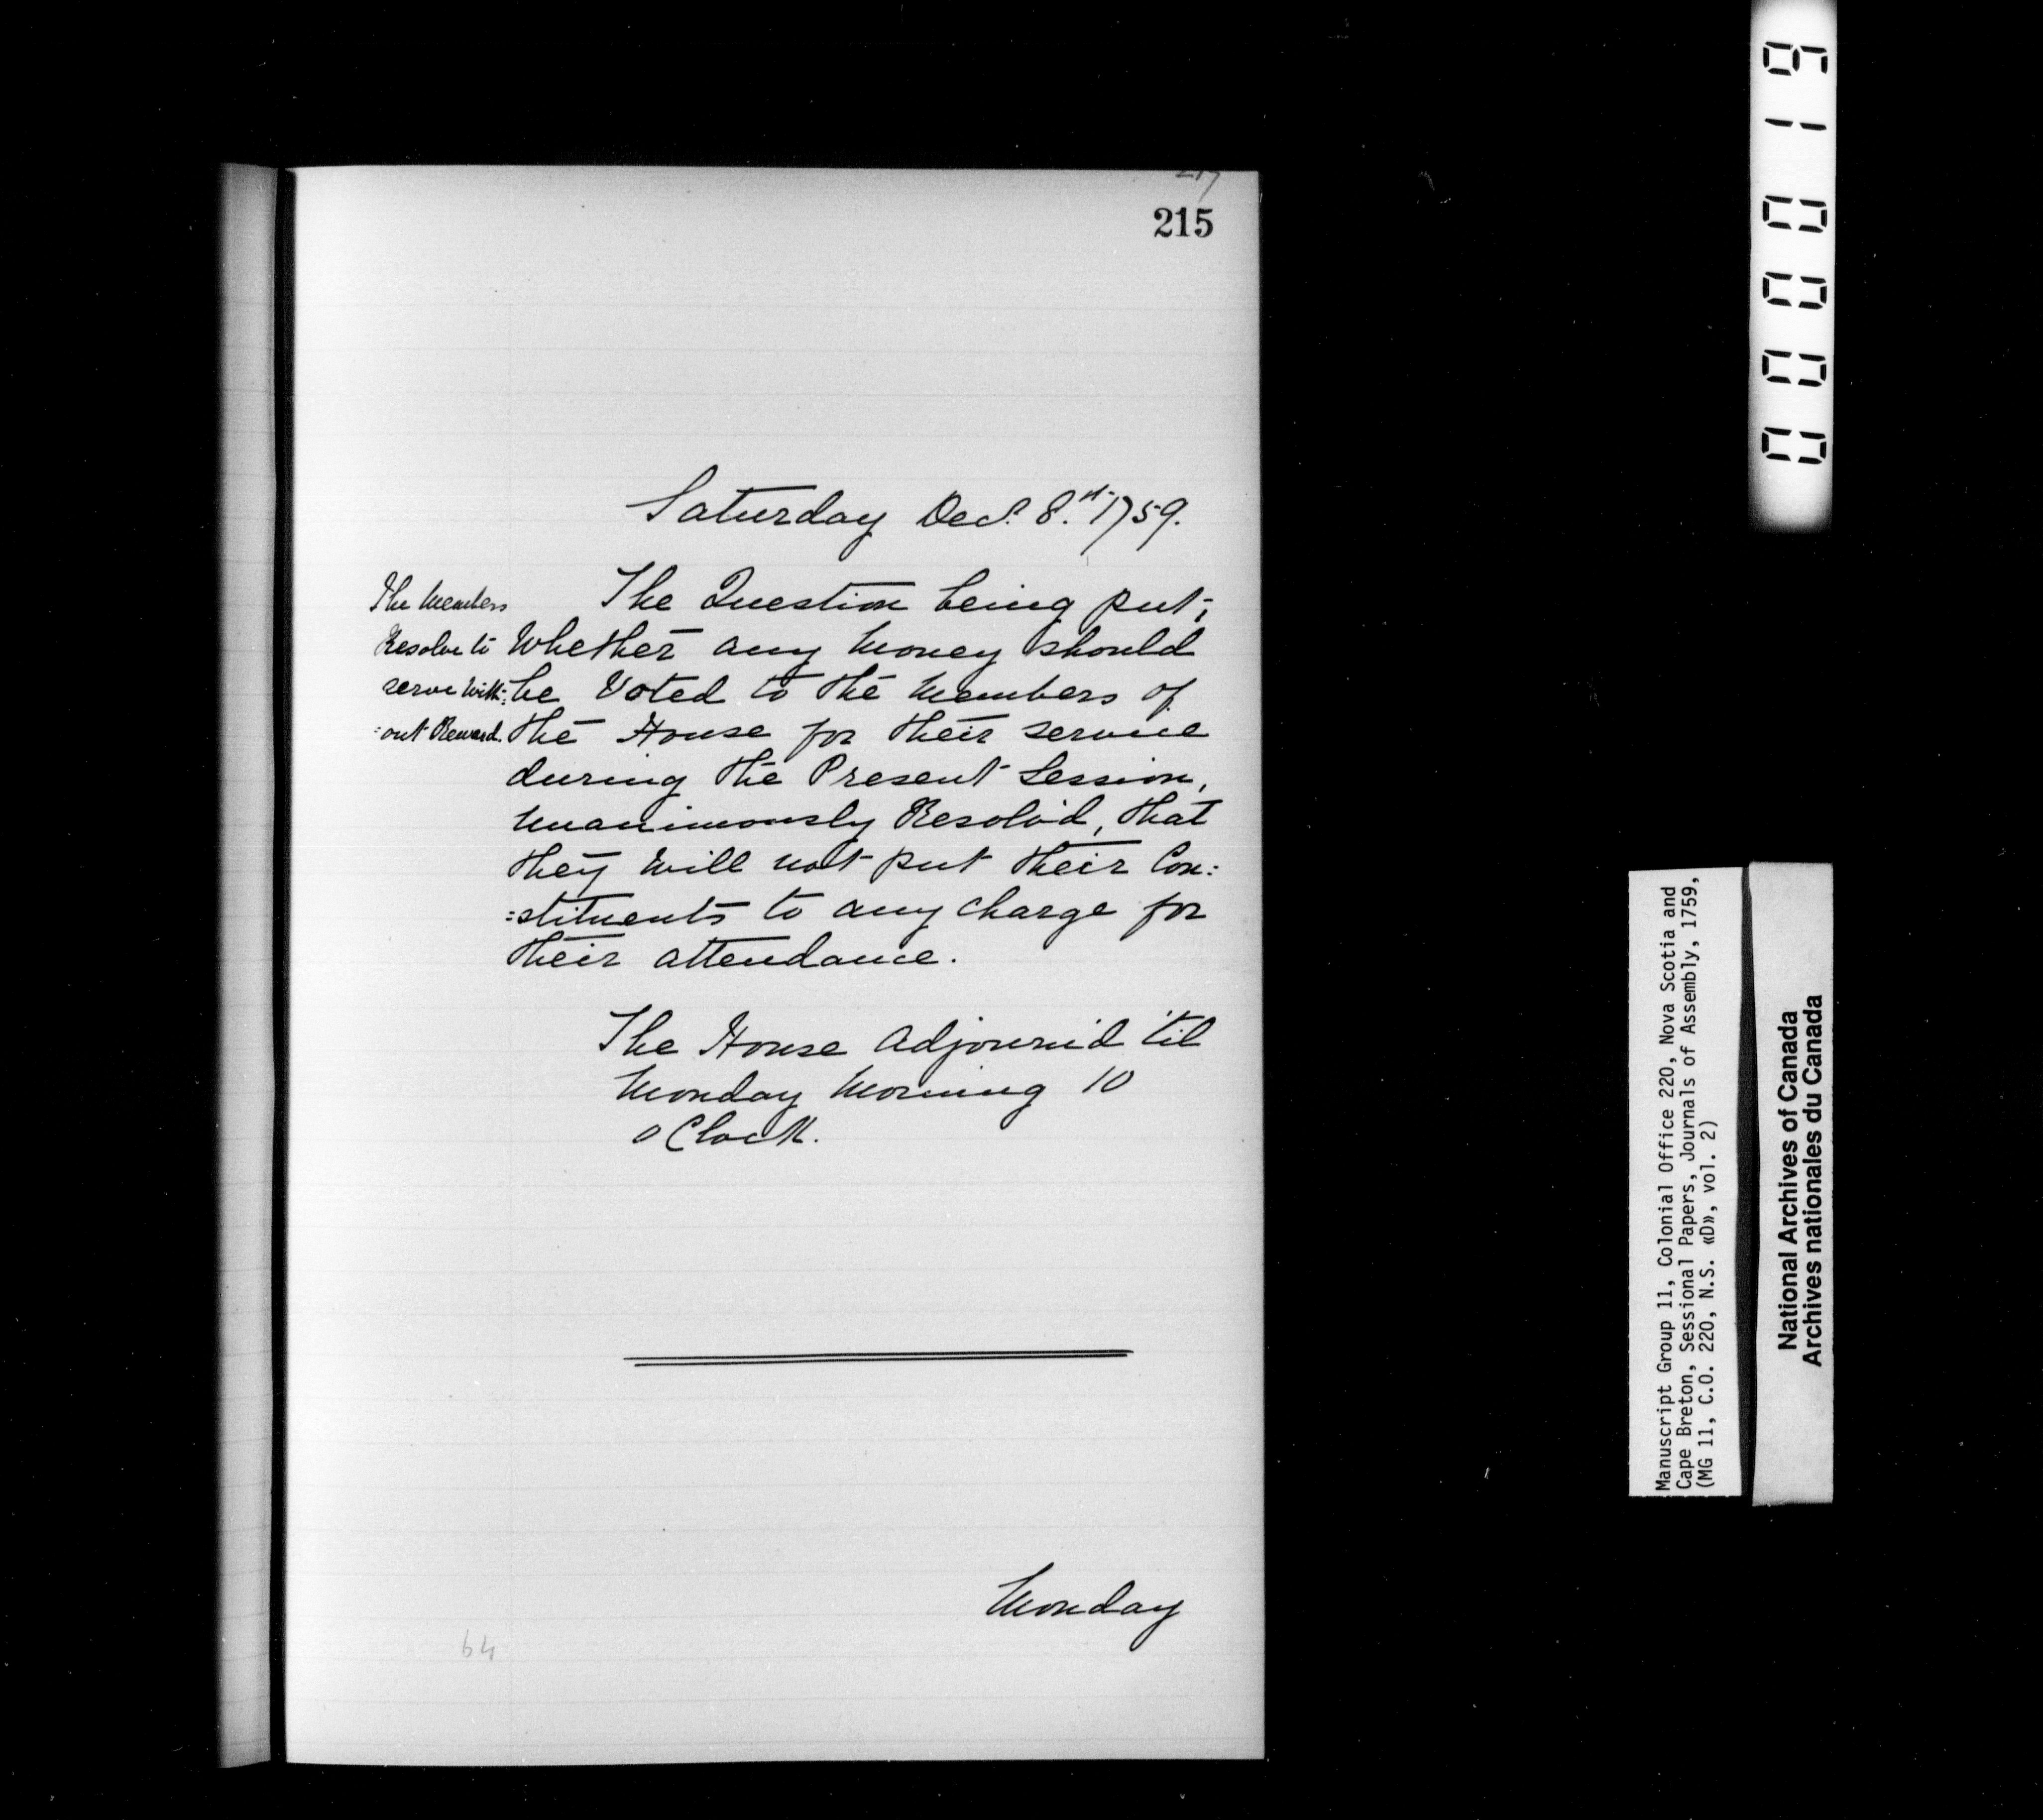 215
Saturday Decr. 8th 1759.
The Members
Resolve to
serve with:
:out Reward.
The Question being put;
Whether any Money should
be Voted to the Members of
the House for their service
during the Present Session,
Unanimously Resolv'd, that
they will not put their Con:
:stituents to any Charge for
their attendance.
The House Adjourn'd 'til
Monday Morning 10
oClock.
Monday
64
Manuscript Group 11, Colonial Office 220, Nova Scotia and
Cape Breton, Sessional Papers, Journals of Assembly, 1759,
(MG 11, C.O. 220, N.S. «D», vol. 2)
National Archives of Canada
Archives nationales du Canada